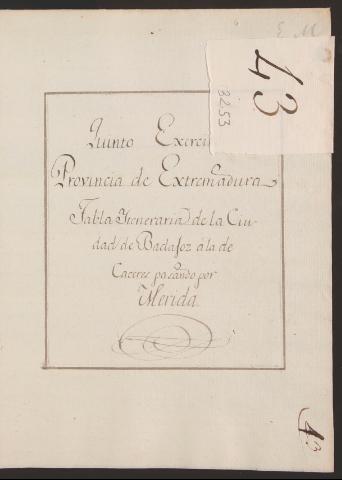 E. M.
43
3253
Quinto Exerci
Provincia de Extremadura
Tabla Iteneraria de la Ciu-
dad de Badajoz á la de
Caceres pasando por
Merida.
43